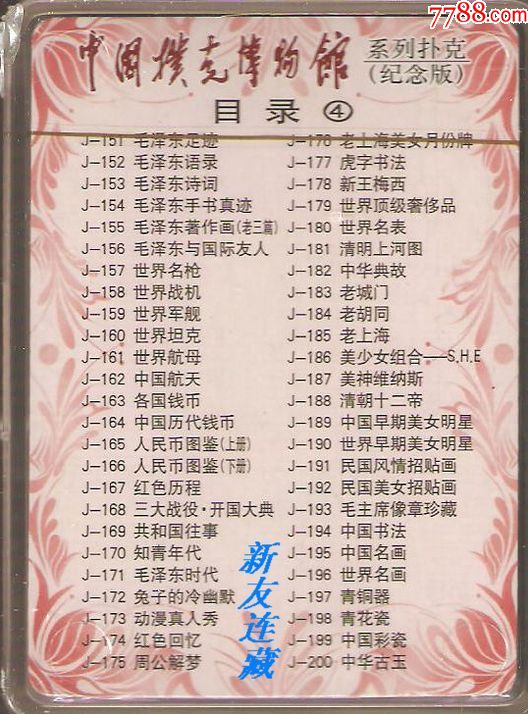 7788.com
中国撲克博物館
系列扑克
(纪念版)
目录④
J-151 毛泽东足迹
J-152 毛泽东语录
J-153 毛泽东诗词
J-154 毛泽东手书真迹
J-155 毛泽东著作画(老三篇)
J-156 毛泽东与国际友人
J-157 世界名枪
J-158 世界战机
J-159 世界军舰
J-160 世界坦克
J-161 世界航母
J-162 中国航天
J-163 各国钱币
J-164 中国历代钱币
J-165 人民币图鉴(上册)
J-166 人民币图鉴(下册)
J-167 红色历程
J-168 三大战役·开国大典
J-169 共和国往事
J-170 知青年代
J-171 毛泽东时代
J-172 兔子的冷幽默
J-173 动漫真人秀
J-174 红色回忆
J-175 周公解梦
J-176 老上海美女月份牌
J-177 虎字书法
J-178 新王梅西
J-179 世界顶级奢侈品
J-180 世界名表
J-181 清明上河图
J-182 中华典故
J-183 老城门
J-184 老胡同
J-185 老上海
J-186 美少女组合——S.H.E
J-187 美神维纳斯
J-188 清朝十二帝
J-189 中国早期美女明星
J-190 世界早期美女明星
J-191 民国风情招贴画
J-192 民国美女招贴画
J-193 毛主席像章珍藏
J-194 中国书法
J-195 中国名画
J-196 世界名画
J-197 青铜器
J-198 青花瓷
J-199 中国彩瓷
J-200 中华古玉
新友连藏